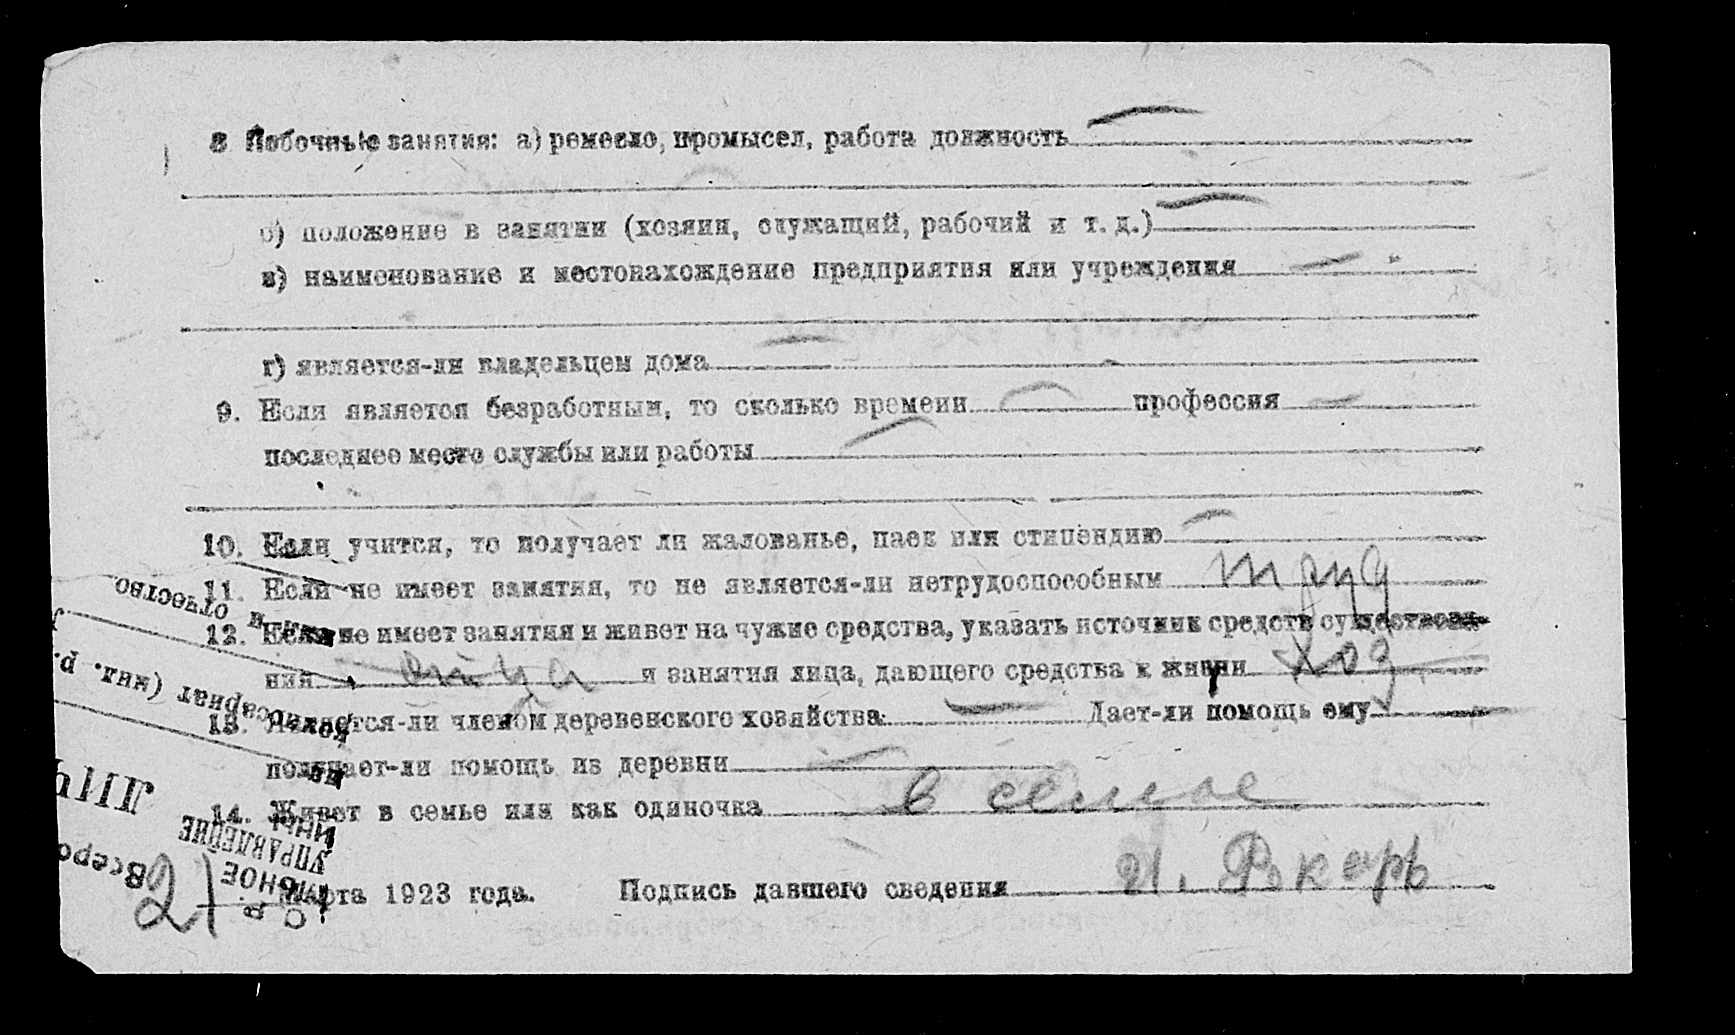 8 Побочные занятия: а) ремесло, промысел, работа должность —
б) положение в занятии (хозяин, служащий, рабочий и т. д.) —
в) наименование и местонахождение предприятия или учреждения —
г) является-ли владельцем дома —
9. Если является безработным, то сколько времени — профессия —
последнее место службы или работы —
10. Если учится, то получает ли жалованье, паек или стипендию —
11. Если не имеет занятия, то не является-ли нетрудоспособным труд
12. Если не имеет занятия и живет на чужие средства, указать источник средств существова-
ния отца и занятия лица, дающего средства к жизни
13. Является-ли членом деревенского хозяйства — Дает-ли помощь ему —
получает-ли помощь из деревни —
14. Живет в семье или как одиночка в семье
21 Марта 1923 года. Подпись давшего сведения И.
отчество
УПРАВЛЕНИЕ
Всеро